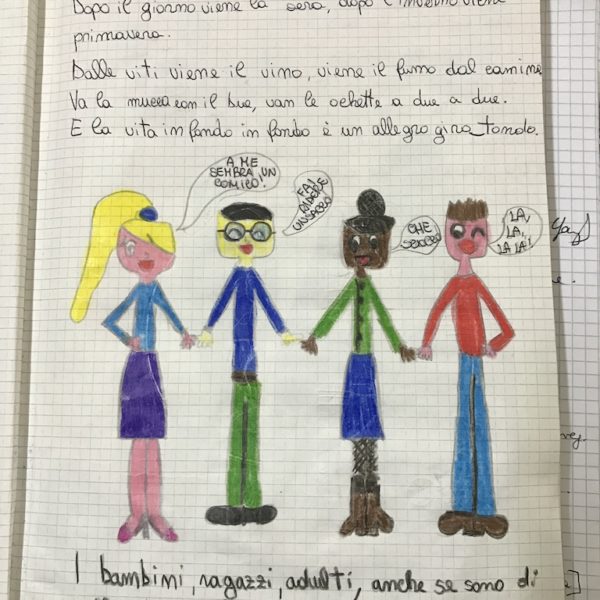 Dopo il giorno viene la sera, dopo l'inverno viene
primavera.
Dalle viti viene il vino, viene il fumo dal camino
Va la mucca con il bue, van le ochette a due a due.
E la vita in fondo in fondo è un allegro giro_tondo.
A ME
SEMBRA UN
COMICO!
FAI
RIDERE
UN SACCO
CHE
LA,
LA,
LA LA!
I bambini, ragazzi, adulti, anche se sono di